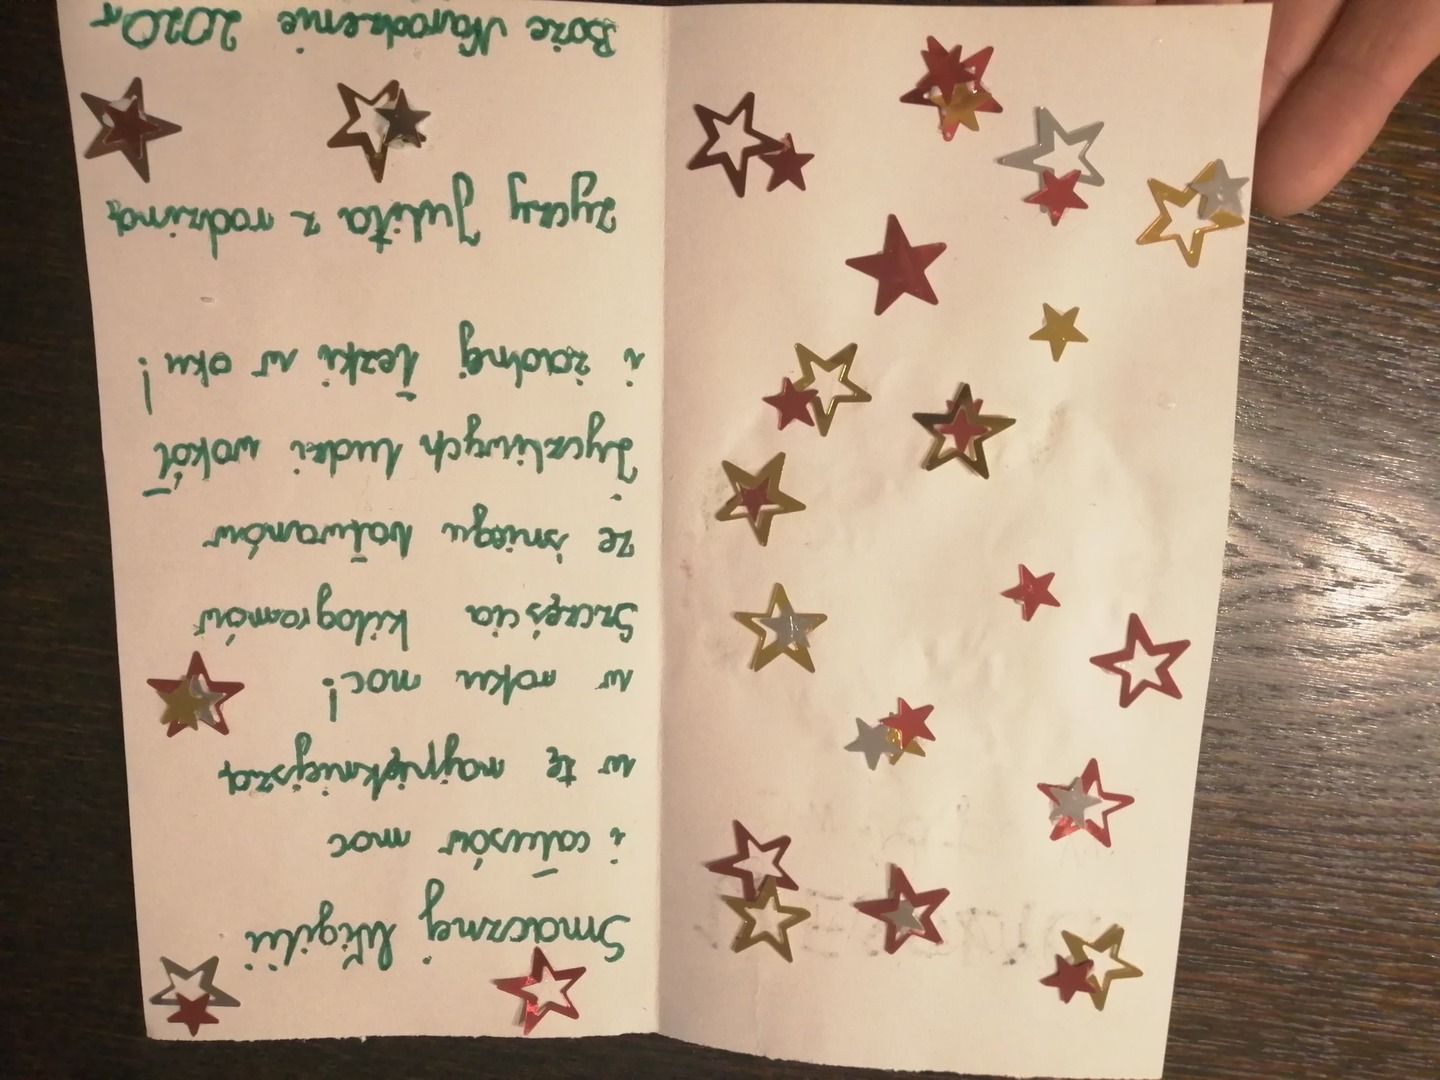 Smacznej Wigilii
i całusów moc
w tę najpiękniejszą
w roku moc!
Szczęścia kilogramów
ze śniegu bałwanów
Życzliwych ludzi wokół
i żadnej łezki w oku!
życzy Julita z rodziną
Boże Narodzenie 2020r